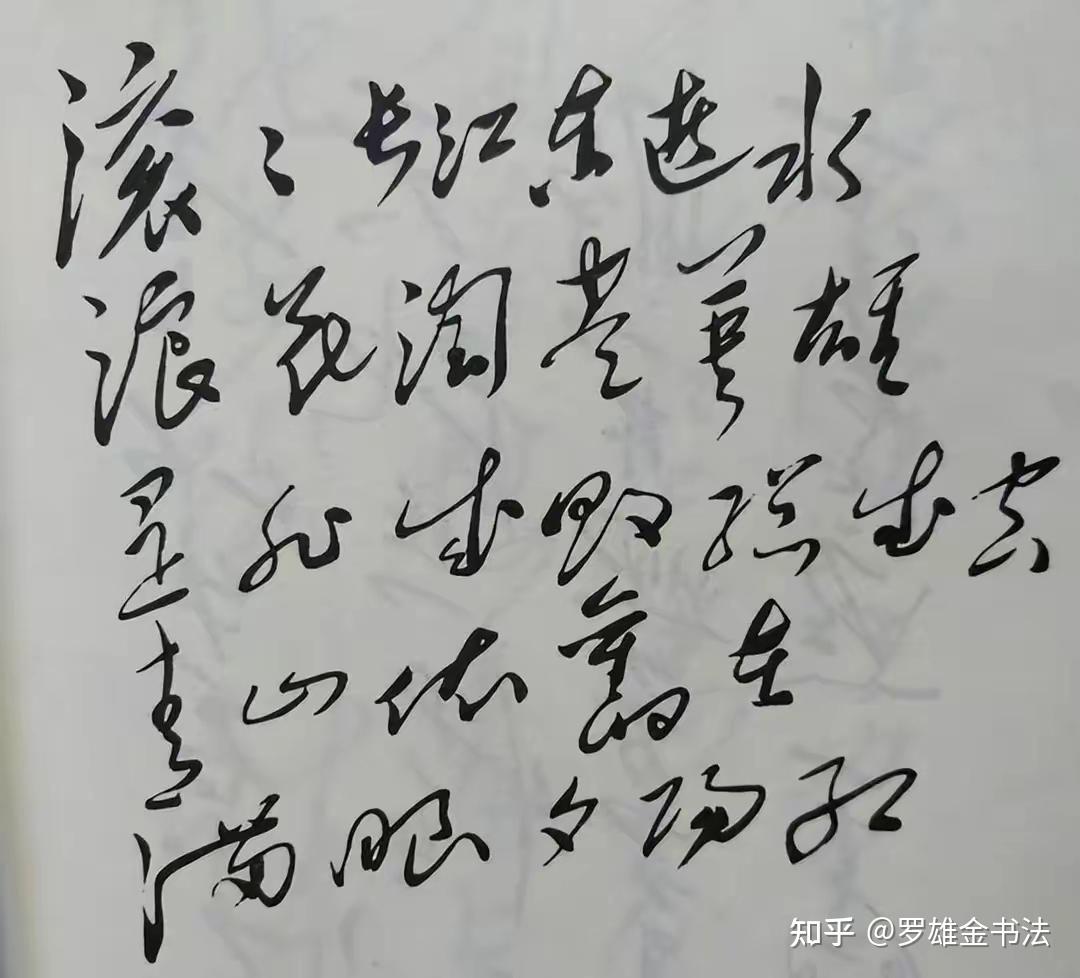 滚〻长江东逝水
浪花淘尽英雄
是非成败转成空
青山依旧在
满眼夕阳红
知乎 @罗雄金书法